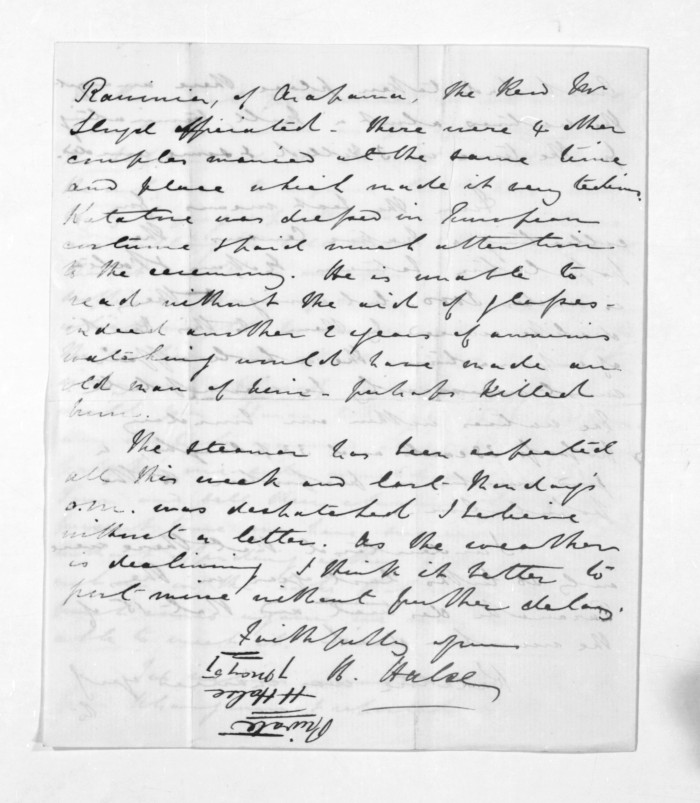 of Arapawa, the Revd Mr
Lloyd officiated. There were 4 other
couples married at the same time
and place which made it very tedious.
Katatore was dressed in European
costume & paid much attention
to the ceremony. He is unable to
read without the aid of glasses -
indeed another 2 years of anxious
watching would have made an
old man of him - perhaps killed
him.
The steamer has been expected
all this week and last Monday's
o.m. was despatched I believe
without a letter. As the weather
is declining I think it better to
post mine without further delay.
Faithfully yours
H. Halse
Private
H Halse
7 Nov